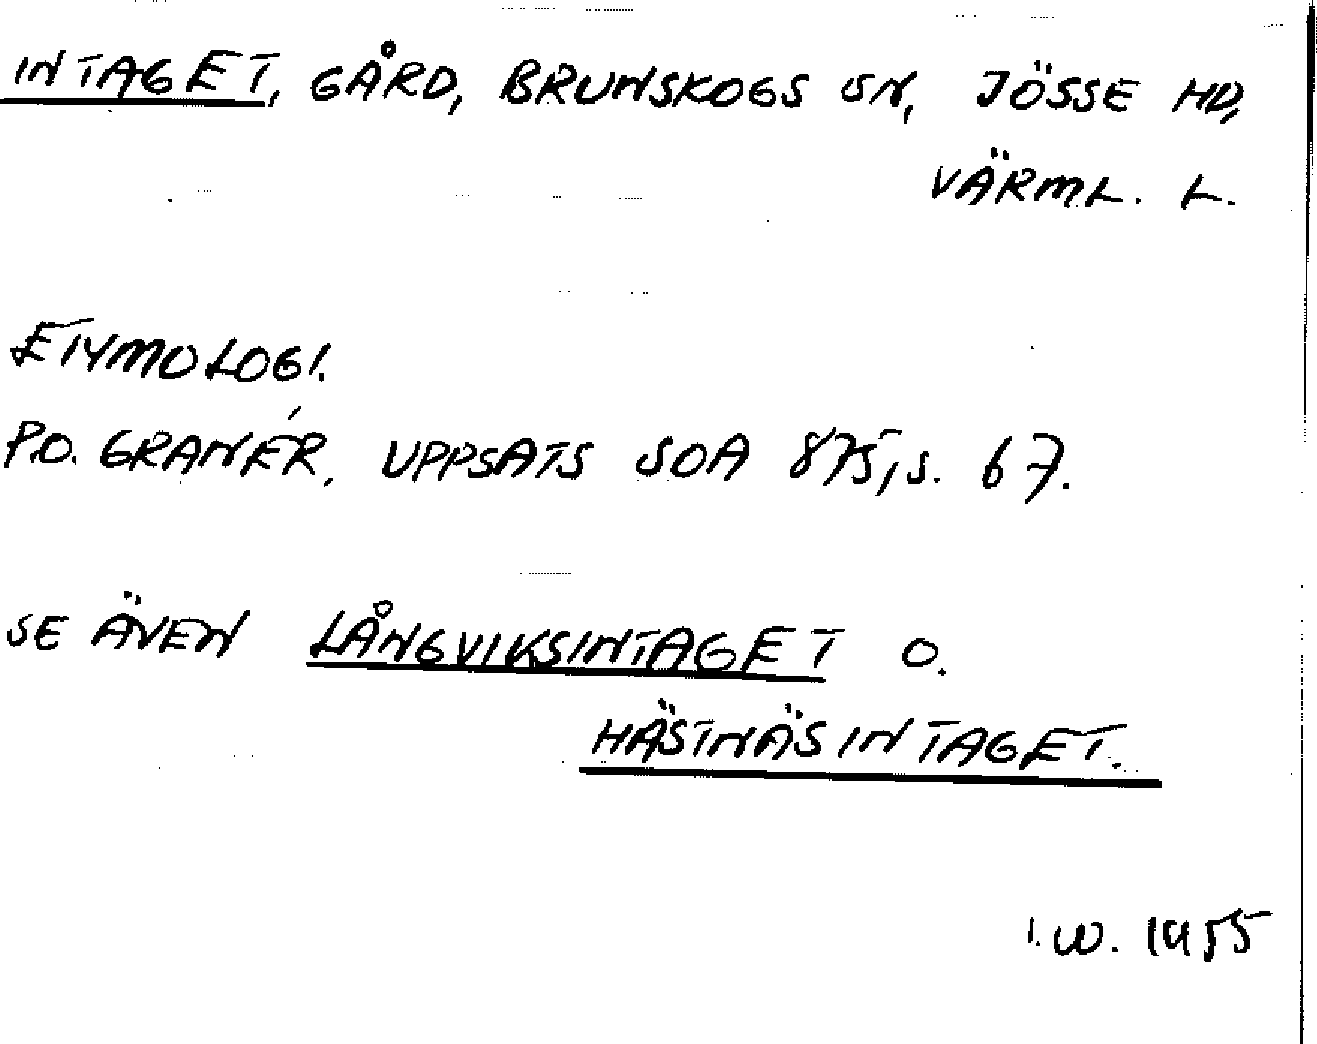 INTAGET, GÅRD, BRUNSKOGS SN, JÖSSE HD,
VÄRML. L.
ETYMOLOGI.
P.O. GRANÉR, UPPSATS SOA 875, S. 67.
SE ÄVEN LÅNGVIKSINTAGET O.
HÄSTNÄSINTAGET.
I.W. 1955